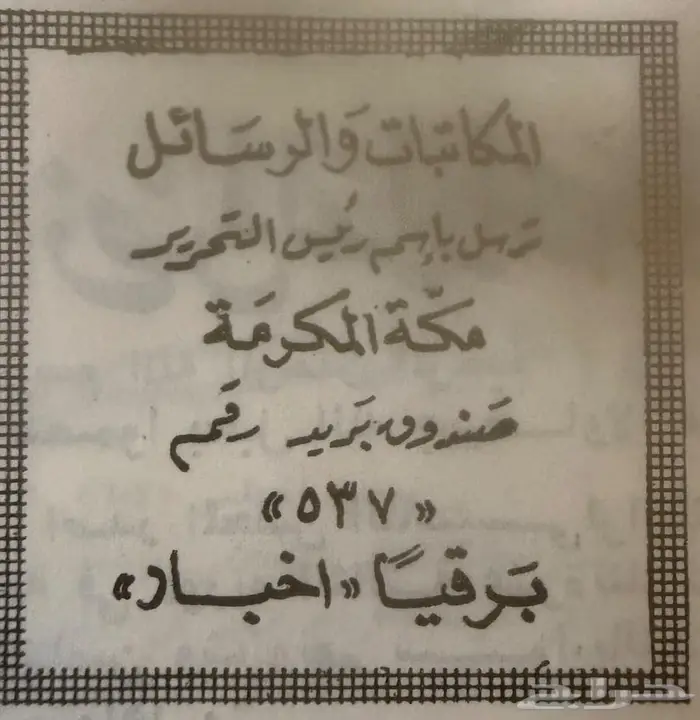 المكاتبات وَالرسَائل
ترسل بإسم رئيس التحرير
مكّة المكرمَة
صَندوق بَريد رقَم
«٥٣٧»
بَرقيًا «اخبار»
حراج